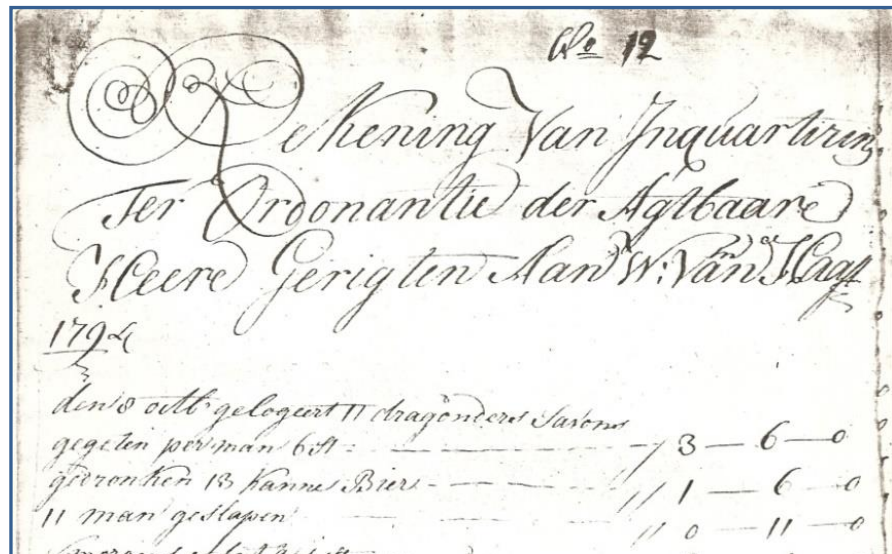 No 12
Rekening Van Inquartiren
Ter Ordonantie der Agtbaare
Heere Gerigten Aan W: Van Haaft
1794
den 8 octb gelogeert 11 dragonders Savons
gegeten per man 6 st - 3 - 6 - 0
gedronken 13 kannes Bier - 1 - 6 - 0
11 man geslapen 0 - 11 - 0